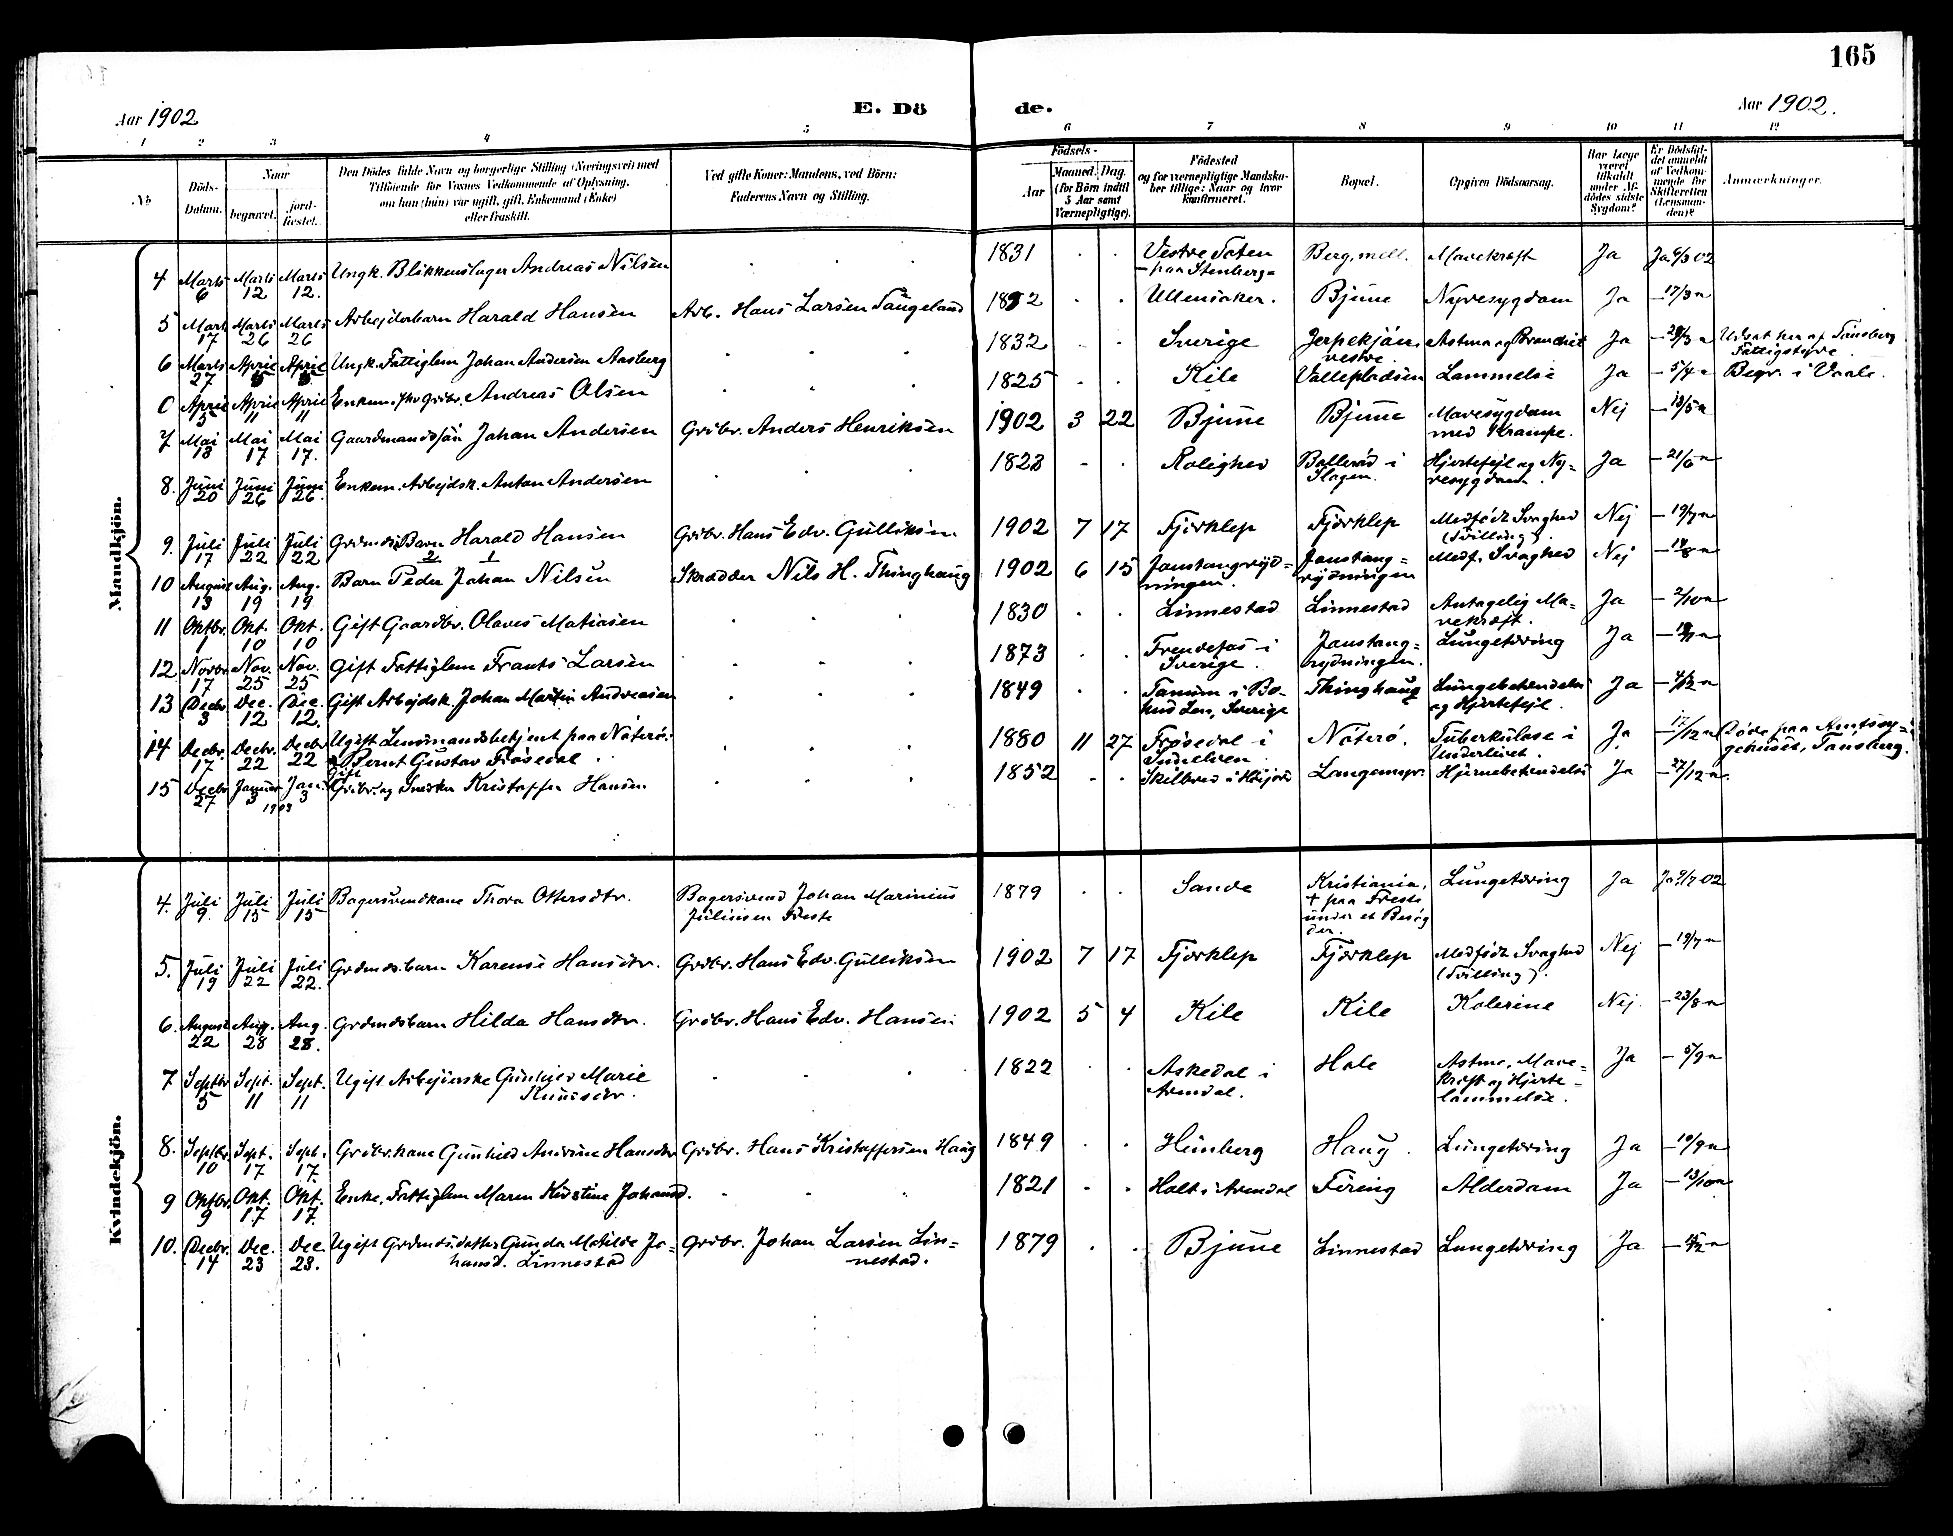 165
Aar 1902
E. Dö
de.
Aar 1902.
1 2 3 4 5 6 7 8 9 10 11 12
№
Döds-Datum.
Naar
begravet.
jord-fæstet.
Den Dödes fulde Navn og borgerlige Stilling (Næringsvei) med
Tilföiende for Voxnes Vedkommende af Oplysning,
om han (hun) var ugift, gift, Enkemand (Enke)
eller fraskilt.
Ved gifte Koner: Mandens, ved Börn:
Faderens Navn og Stilling.
Födsels-
Aar
Maaned. Dag.
(for Börn indtil
5 Aar samt
Værnepligtige).
Födested
og for værnepligtige Mandska-
ber tillige: Naar og hvor
konfirmeret.
Bopæl.
Opgiven Dödsaarsag.
Har Læge
været
tilkaldt
under Af-
dödes sidste
Sygdom?
Er Dödsfal-
det anmeldt
af Vedkom-
mende for
Skifteretten
(Lensman-
den)?
Anmærkninger.
Mandkjön.
4 Marts 6 Marts 12 Marts 12. Ungk. Blikkenslager Andreas Nilsen 1831 Vestre Toten paa Stenberg Berg, mell. Mavekræft Ja Ja 6/3 02
5 Marts 17 Marts 26 Marts 26 Arbejderbarn Harald Hansen Arb. Hans Larsen Taugeland Ullensaker. Bjune Nyresygdom Ja 17/3
6 Marts 27 April 5 April 5 Ungk. Fattiglem Johan Andersen Aasberg 1832 Sverige Jerpekjøn vestre Astma og Ja Udsat her af Tønsberg Fattigstyre.
0 April 5 April 11 April 11 Enkem. Grdbr. Andreas Olsen 1825 Kile Vallepladsen Lammelse Ja 5/4 Begr. i Vaale.
7 Mai 13 Mai 17 Mai 17. Gaardmandssøn Johan Andersen Grdbr. Anders Henriksen 1902 3 22 Bjune Bjune Mavesygdom med Krampe. Nej 13/5
8. Juni 20 Juni 26 Juni 26. Enkem. Arbejdsk. Anton Andersen 1823 Rolighed Bollerød i Slagen. Hjertefejl og Nyresygdom. Ja 21/6
9. Juli 17 Juli 22 Juli 22 Grdmds. Barn Harald Hansen Grdbr. Hans Edv. Gulliksen 1902 7 17 Fjærklep Fjærklep Medfødt Svaghed (Tvilling). Nej 19/7
10 August 13 Aug. 19 Aug. 19 Barn Peder Johan Nilsen Skrædder Nils H. Thinghaug 1902 6 15 Jonstangrydningen. Jonstangrydningen Medf. Svaghed Nej
11 Oktbr. 1 Okt. 10 Okt. 10 Gift Gaardbr. Olaves Matiasen 1830 Linnestad Linnestad Antagelig Mavekræft. Ja 2/10
12 Novbr. 17 Nov. 25 Nov. 25 Gift Fattiglem Frants Larsen 1873 Frendefos i Sverige. Jonstangrydningen. Lungetæring Ja
13 Decbr. 3 Dec. 12 Dec. 12. Gift Arbejdsk. Johan Martin Andreasen 1849 Tanum i Bohus Len, Sverige Thinghaug Lungebetændelse og Hjertefejl. Ja 4/12
14 Decbr. 17 Decbr. 22 Decbr. 22 Ugift Lensmandsbetjent paa Nøterø. Bernt Gustav Frøsedal 1880 11 27 Frøsedal i Nøterø. Tuberkulose i Underlivet. Ja 17/12 Døde paa Amtssygehuset, Tønsberg.
15 Decbr. 27 Januar 3 Jan. 3 1903 Gift Grdbr. og Snedker Kristoffer Hansen 1852 Skilbred i Langemyr. Hjernebetændelse Ja 27/12
Kvindekjön.
4. Juli 9. Juli 15 Juli 15 Bagersvendkone Thora Ottersdtr. Bagersvend Johan Marinius Juliusen Freste 1879 Sande Kristiania, + paa Freste under et Besøg der. Lungetæring Ja Ja 9/7 02
5. Juli 19 Juli 22 Juli 22. Grdmdsbarn Karense Hansdtr. Grdbr. Hans Edv. Gulliksen 1902 7 17 Fjærklep Fjærklep Medfødt Svaghed (Tvilling). Nej 19/7
6. August 22 Aug. 28 Aug. 28. Grdmdsbarn Hilda Hansdtr. Grdbr. Hans Edv. Hansen 1902 5 4 Kile Kile Kolerine Nej. 23/8
7 Septbr. 5 Sept. 11 Sept. 11 Ugift Arbejderske Gunhild Marie Knudsdtr. 1822 Askedal i Arendal. Hole Astma, Mavekræft og Hjertelammelse. Ja 5/9
8. Septbr. 10 Sept. 17 Sept. 17. Grdbr.kone Gunhild Andrine Hansdtr Grdbr. Hans Kristoffersen Haug 1849 Heimberg Haug. Lungetæring Ja 10/9
9 Oktbr. 9 Okt. 17 Okt. 17. Enke, Fattiglem Maren Kirstine Johansd. 1821 Holt i Arendal Firing Alderdom Ja 13/10
10. Decbr. 14 Dec. 23 Dec. 23. Ugift Grdmds.datter Gunda Matilde Johansd. Linnestad Grdbr. Johan Larsen Linnestad. 1879 Bjune Linnestad Lungetæring Ja